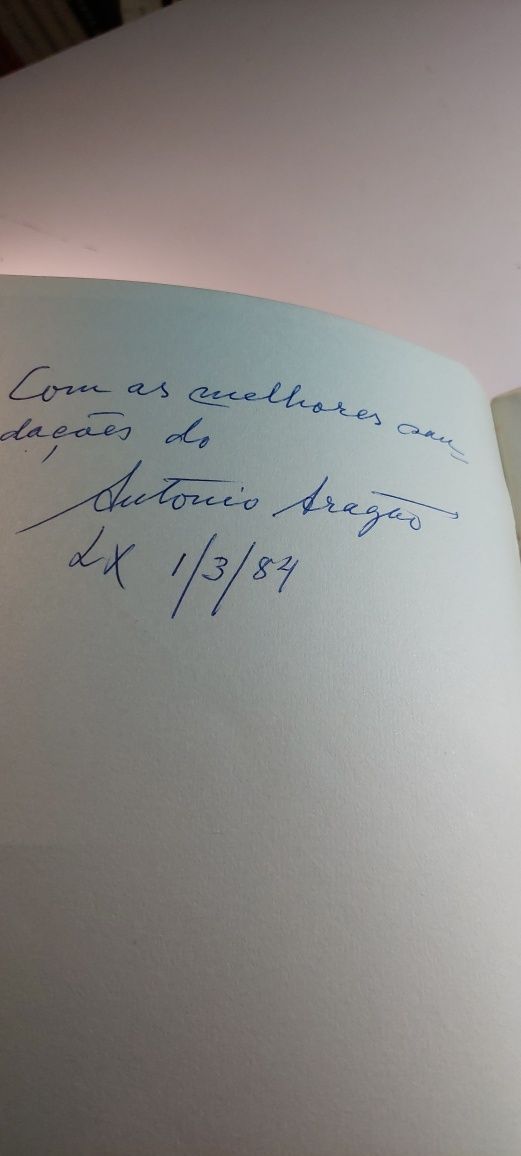 Com as melhores sau-
dações do
António Aragão
LX 1/3/84